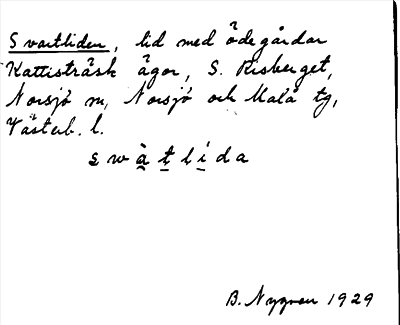 Svartliden, lid med ödegårdar
Kattisträsk ägor, S. Risberget,
Norsjö sn, Norsjö och Malå tg,
Västerb. l.
swàtlída
B. Nygren 1929